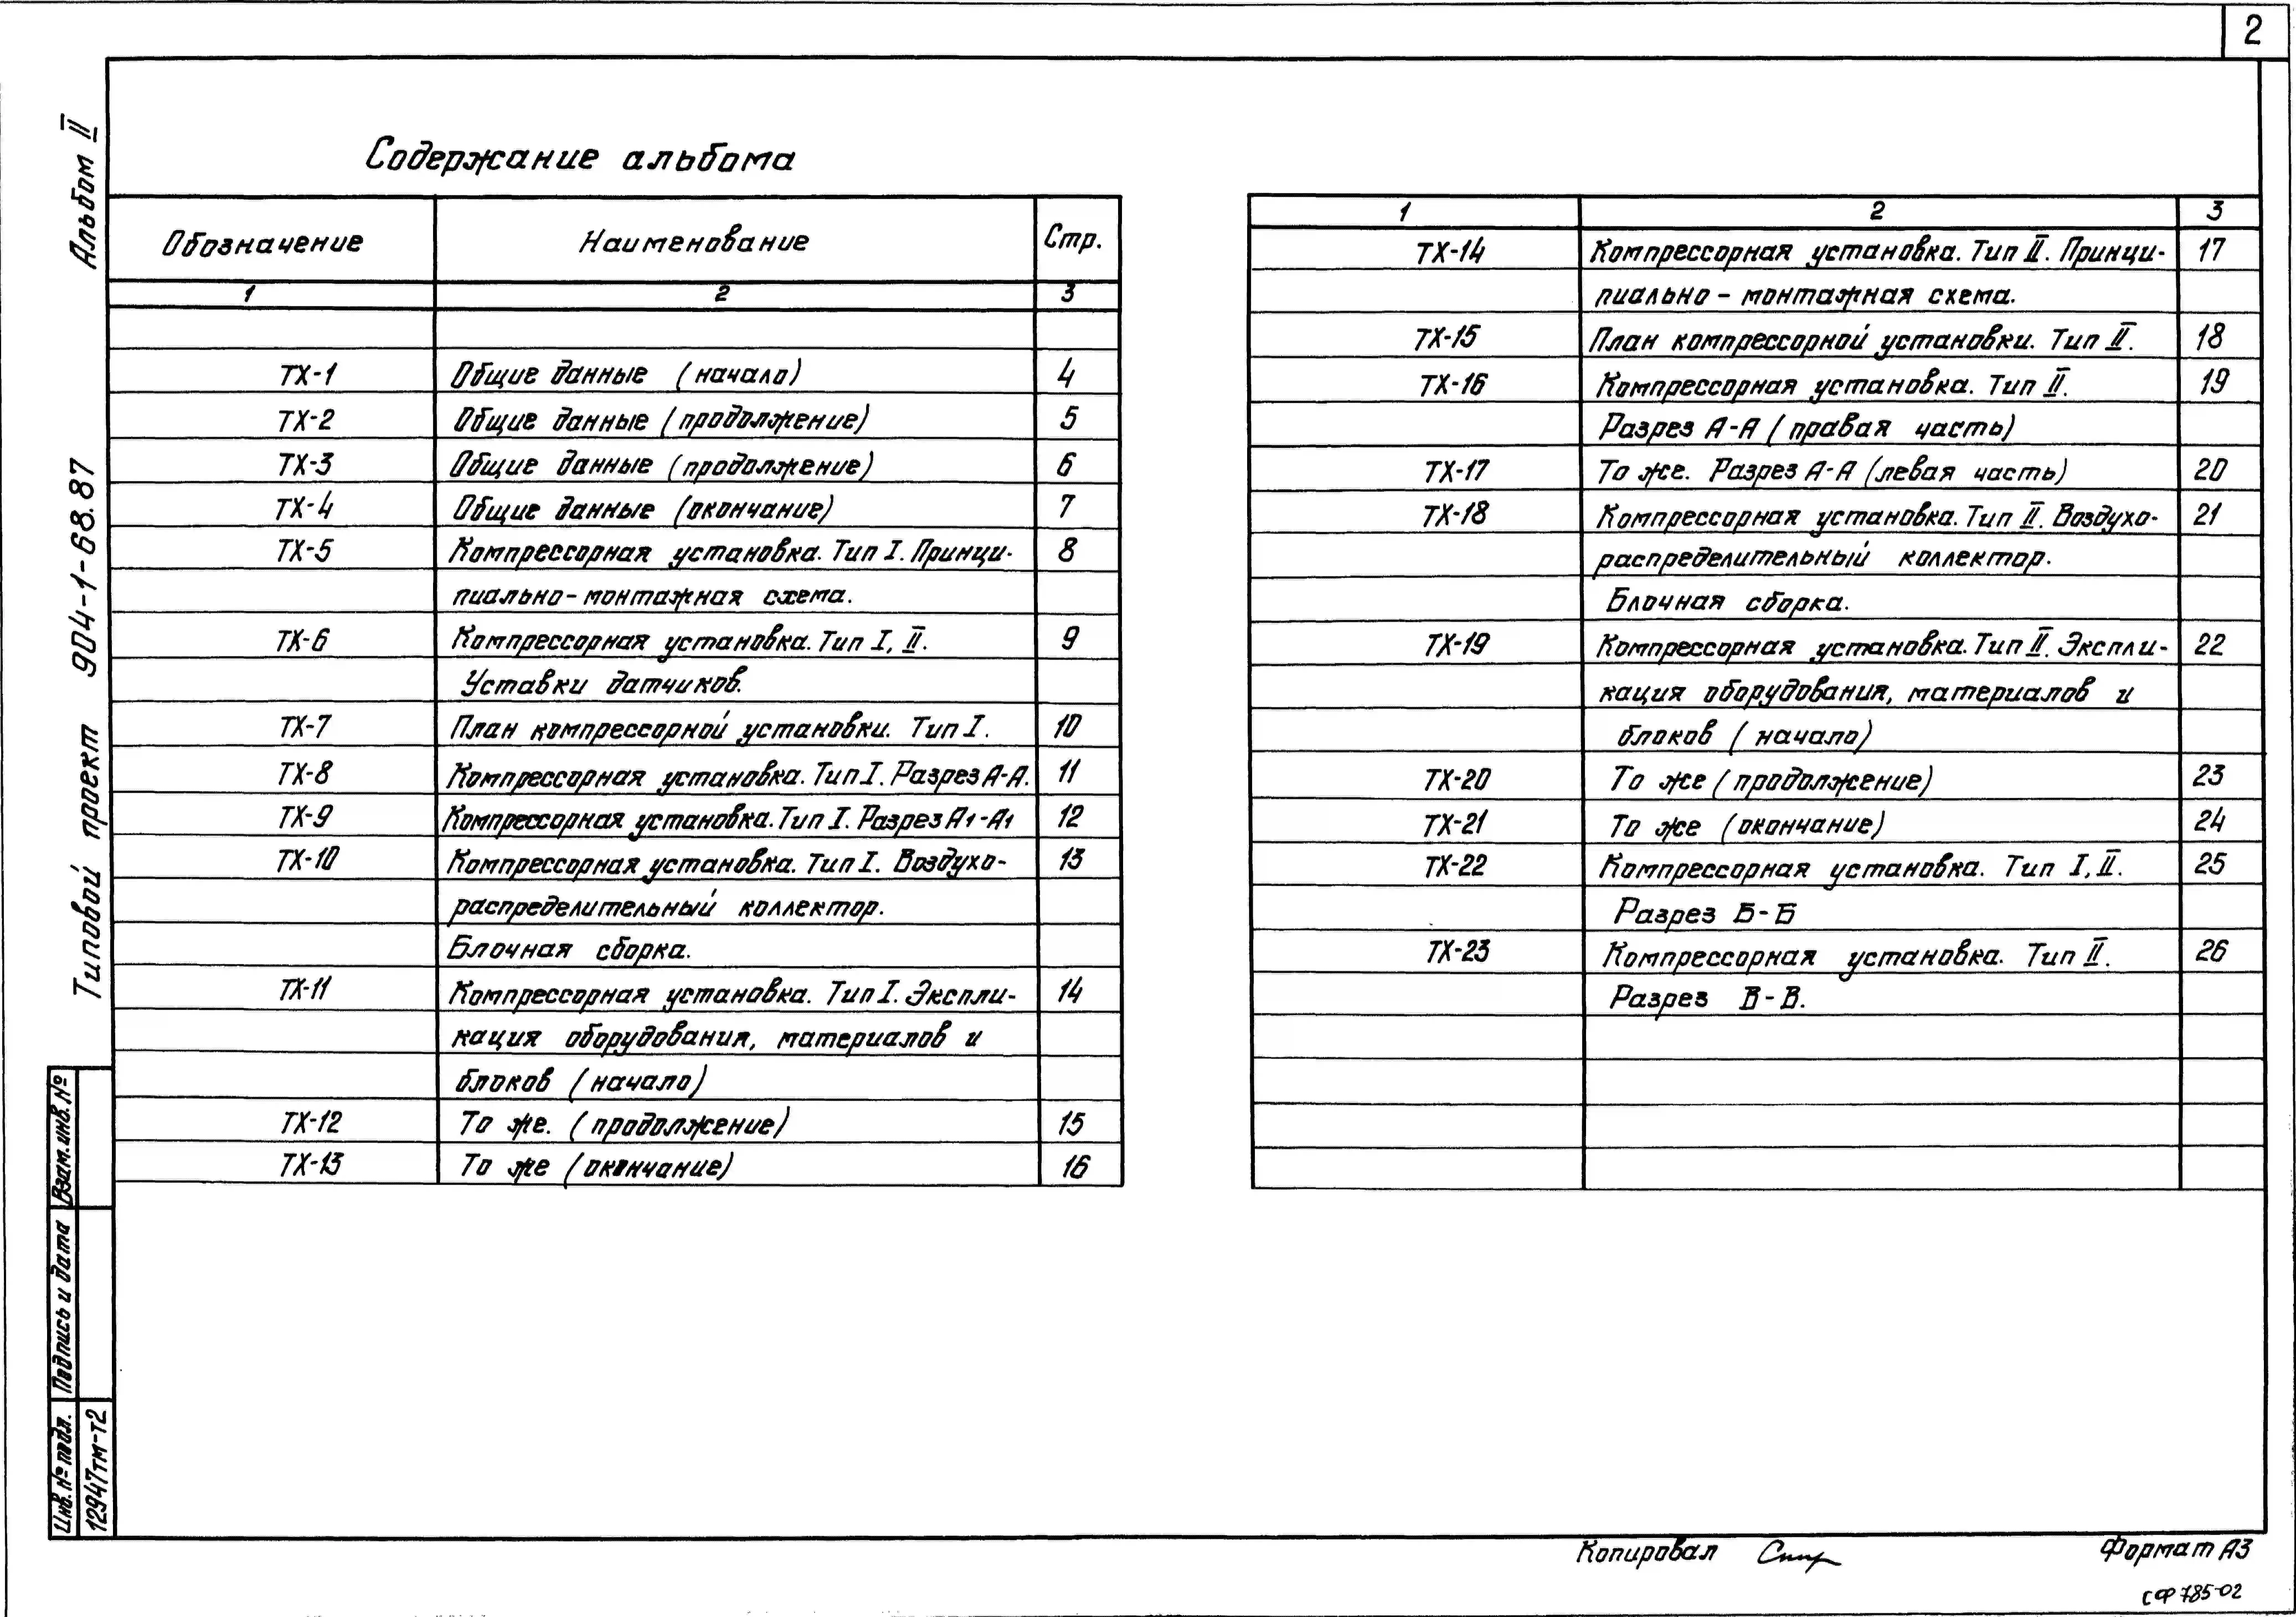 2
Альбом II
Типовой проект 904-1-68.87
Содержание альбома
Обозначение Наименование Стр.
1 2 3
ТХ-1 Общие данные (начало) 4
ТХ-2 Общие данные (продолжение) 5
ТХ-3 Общие данные (продолжение) 6
ТХ-4 Общие данные (окончание) 7
ТХ-5 Компрессорная установка. Тип I. Принци- 8
пиально-монтажная схема.
ТХ-6 Компрессорная установка. Тип I, II. 9
Уставки датчиков.
ТХ-7 План компрессорной установки. Тип I. 10
ТХ-8 Компрессорная установка. Тип I. Разрез А-А. 11
ТХ-9 Компрессорная установка. Тип I. Разрез А1-А1 12
ТХ-10 Компрессорная установка. Тип I. Воздухо- 13
распределительный коллектор.
Блочная сборка.
ТХ-11 Компрессорная установка. Тип I. Экспли- 14
кация оборудования, материалов и
блоков (начало)
ТХ-12 То же. (продолжение) 15
ТХ-13 То же (окончание) 16
1 2 3
ТХ-14 Компрессорная установка. Тип II. Принци- 17
пиально-монтажная схема.
ТХ-15 План компрессорной установки. Тип II. 18
ТХ-16 Компрессорная установка. Тип II. 19
Разрез А-А (правая часть)
ТХ-17 То же. Разрез А-А (левая часть) 20
ТХ-18 Компрессорная установка. Тип II. Воздухо- 21
распределительный коллектор.
Блочная сборка.
ТХ-19 Компрессорная установка. Тип II. Экспли- 22
кация оборудования, материалов и
блоков (начало)
ТХ-20 То же (продолжение) 23
ТХ-21 То же (окончание) 24
ТХ-22 Компрессорная установка. Тип I, II. 25
Разрез Б-Б
ТХ-23 Компрессорная установка. Тип II. 26
Разрез В-В.
Взам. инв. №
Подпись и дата
Инв. № подл.
12947тм-т2
Копировал
Формат А3
СФ 785-02